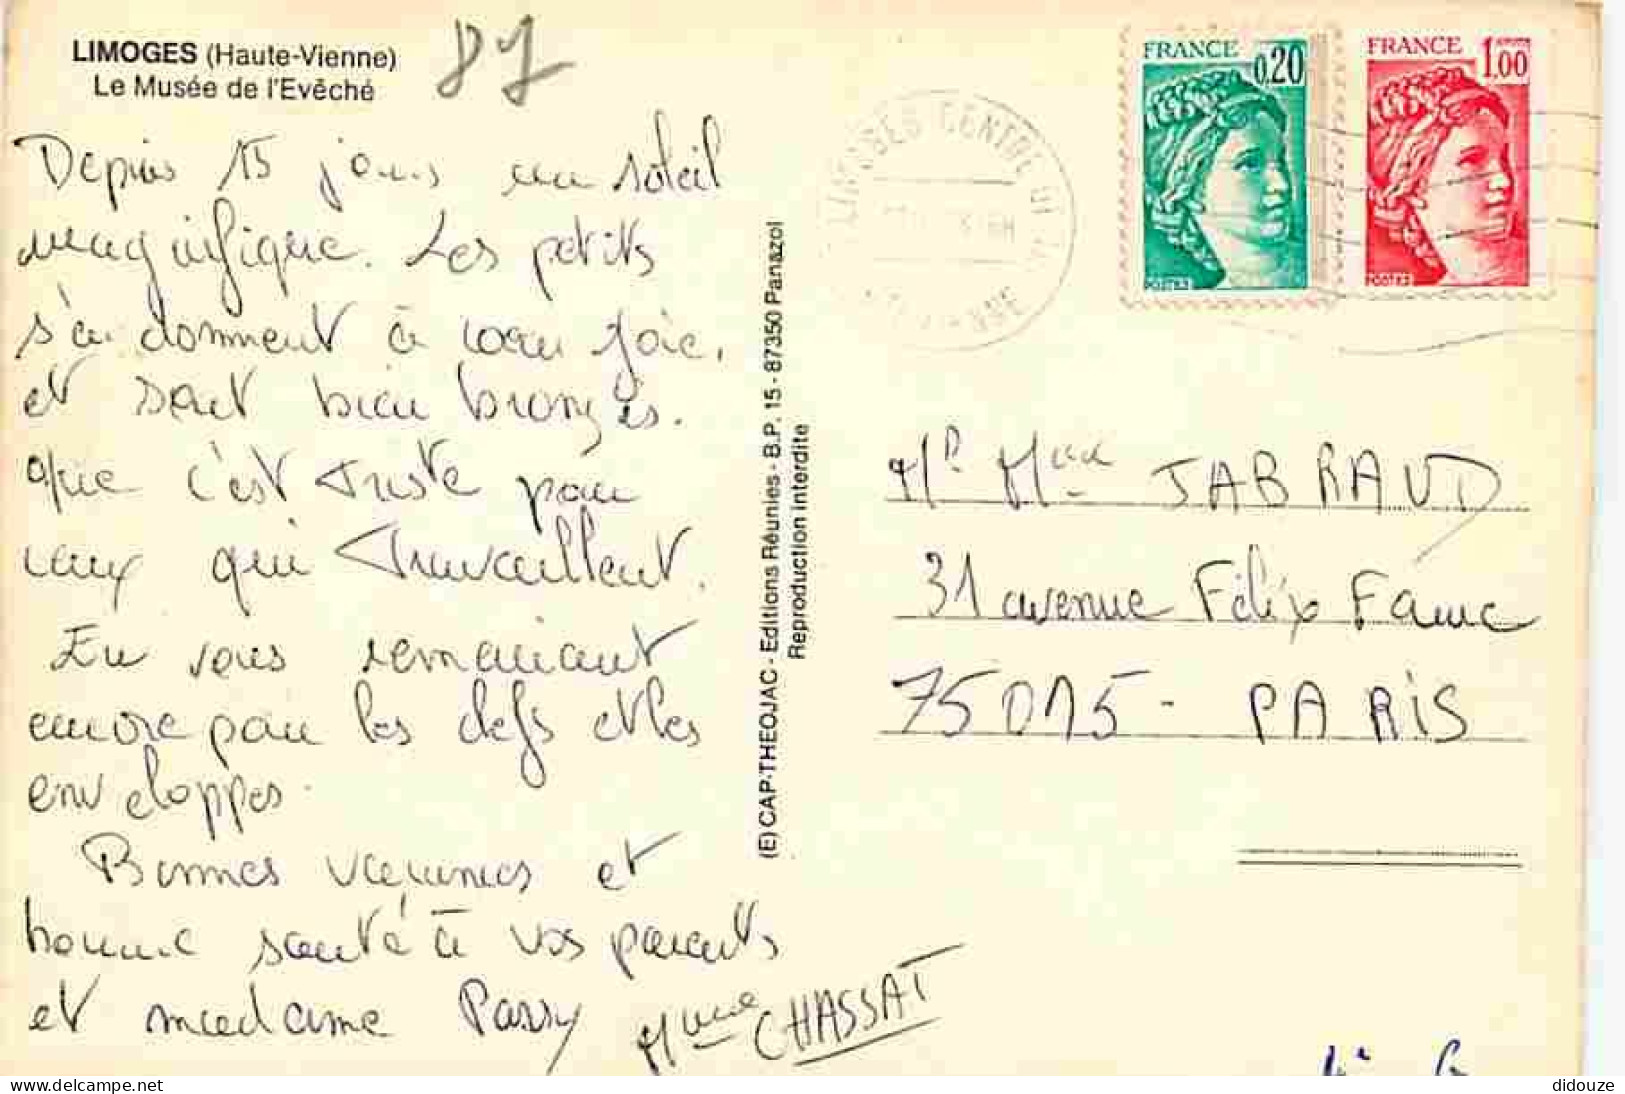 LIMOGES (Haute-Vienne)
Le Musée de l'Evêché
87
Depuis 15 jours un soleil
magnifique. Les petits
s'en donnent à cœur joie,
et sont bien bronzés.
Que c'est triste pour
ceux qui travaillent.
En vous remerciant
encore pour les clefs et les
enveloppes.
Bonnes vacances et
bonne santé à vos parents
et madame Passy
Mme CHASSAT
(E) CAP-THEOJAC - Editions Réunies - B.P. 15 - 87350 Panazol
Reproduction interdite
FRANCE 0,20
POSTES
FRANCE 1,00
POSTES
LIMOGES CENTRE
VIENNE
Mr Mme JABRAUD
31 avenue Félix Faure
75015 - PARIS
didouze
delcampe.net